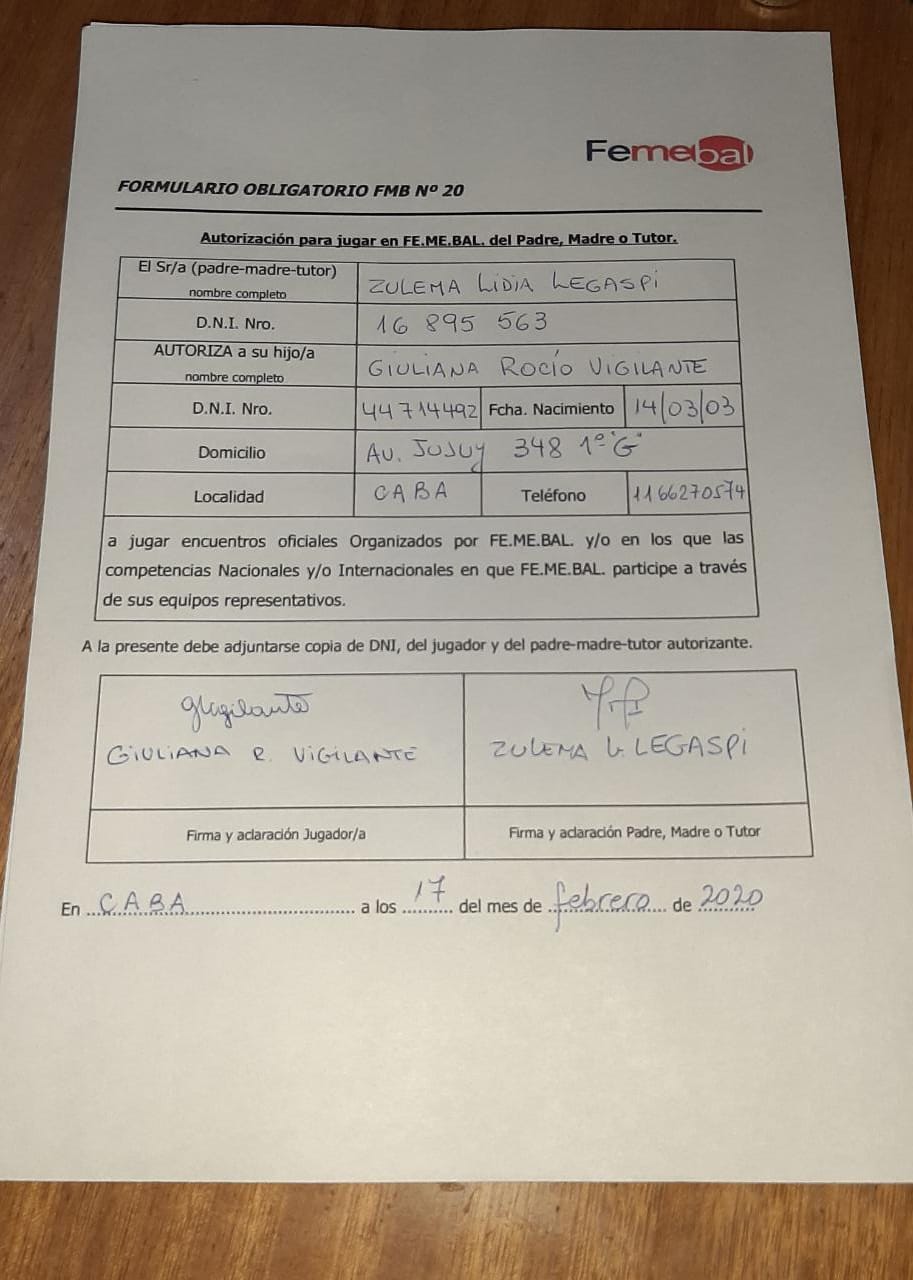 Femebal
FORMULARIO OBLIGATORIO FMB Nº 20
Autorización para jugar en FE.ME.BAL. del Padre, Madre o Tutor.
El Sr/a (padre-madre-tutor)
nombre completo
ZULEMA LIDIA LEGASPI
D.N.I. Nro.
16 895 563
AUTORIZA a su hijo/a
nombre completo
GIULIANA ROCÍO VIGILANTE
D.N.I. Nro.
44714492
Fcha. Nacimiento
14/03/03
Domicilio
AV. JUJUY 348 1º "G"
Localidad
CABA
Teléfono
1166270574
a jugar encuentros oficiales Organizados por FE.ME.BAL. y/o en los que las
competencias Nacionales y/o Internacionales en que FE.ME.BAL. participe a través
de sus equipos representativos.
A la presente debe adjuntarse copia de DNI, del jugador y del padre-madre-tutor autorizante.
GVigilante
GIULIANA R. VIGILANTE
ZULEMA L. LEGASPI
Firma y aclaración Jugador/a
Firma y aclaración Padre, Madre o Tutor
En CABA a los 17 del mes de febrero de 2020